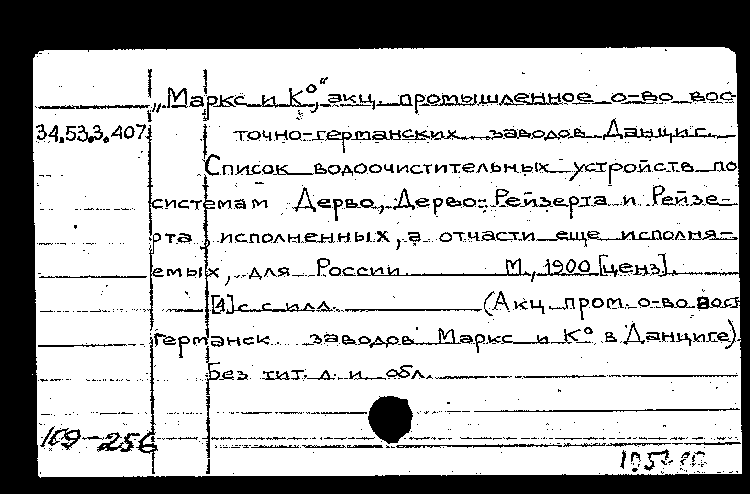 „Маркс и К°,“ акц. промышленное о-во вос-
34.53.3.407 точно-германских заводов Данциг.
Список водоочистительных устройств по
системам Дерво, Дерво-Рейзерта и Рейзе-
рта, исполненных, а отчасти еще исполня-
емых, для России М., 1900 [ценз].
[4] с. с илл. (Акц. пром. о-во вост
германск. заводов Маркс и К° в Данциге)
Без тит. л. и обл.
169-256